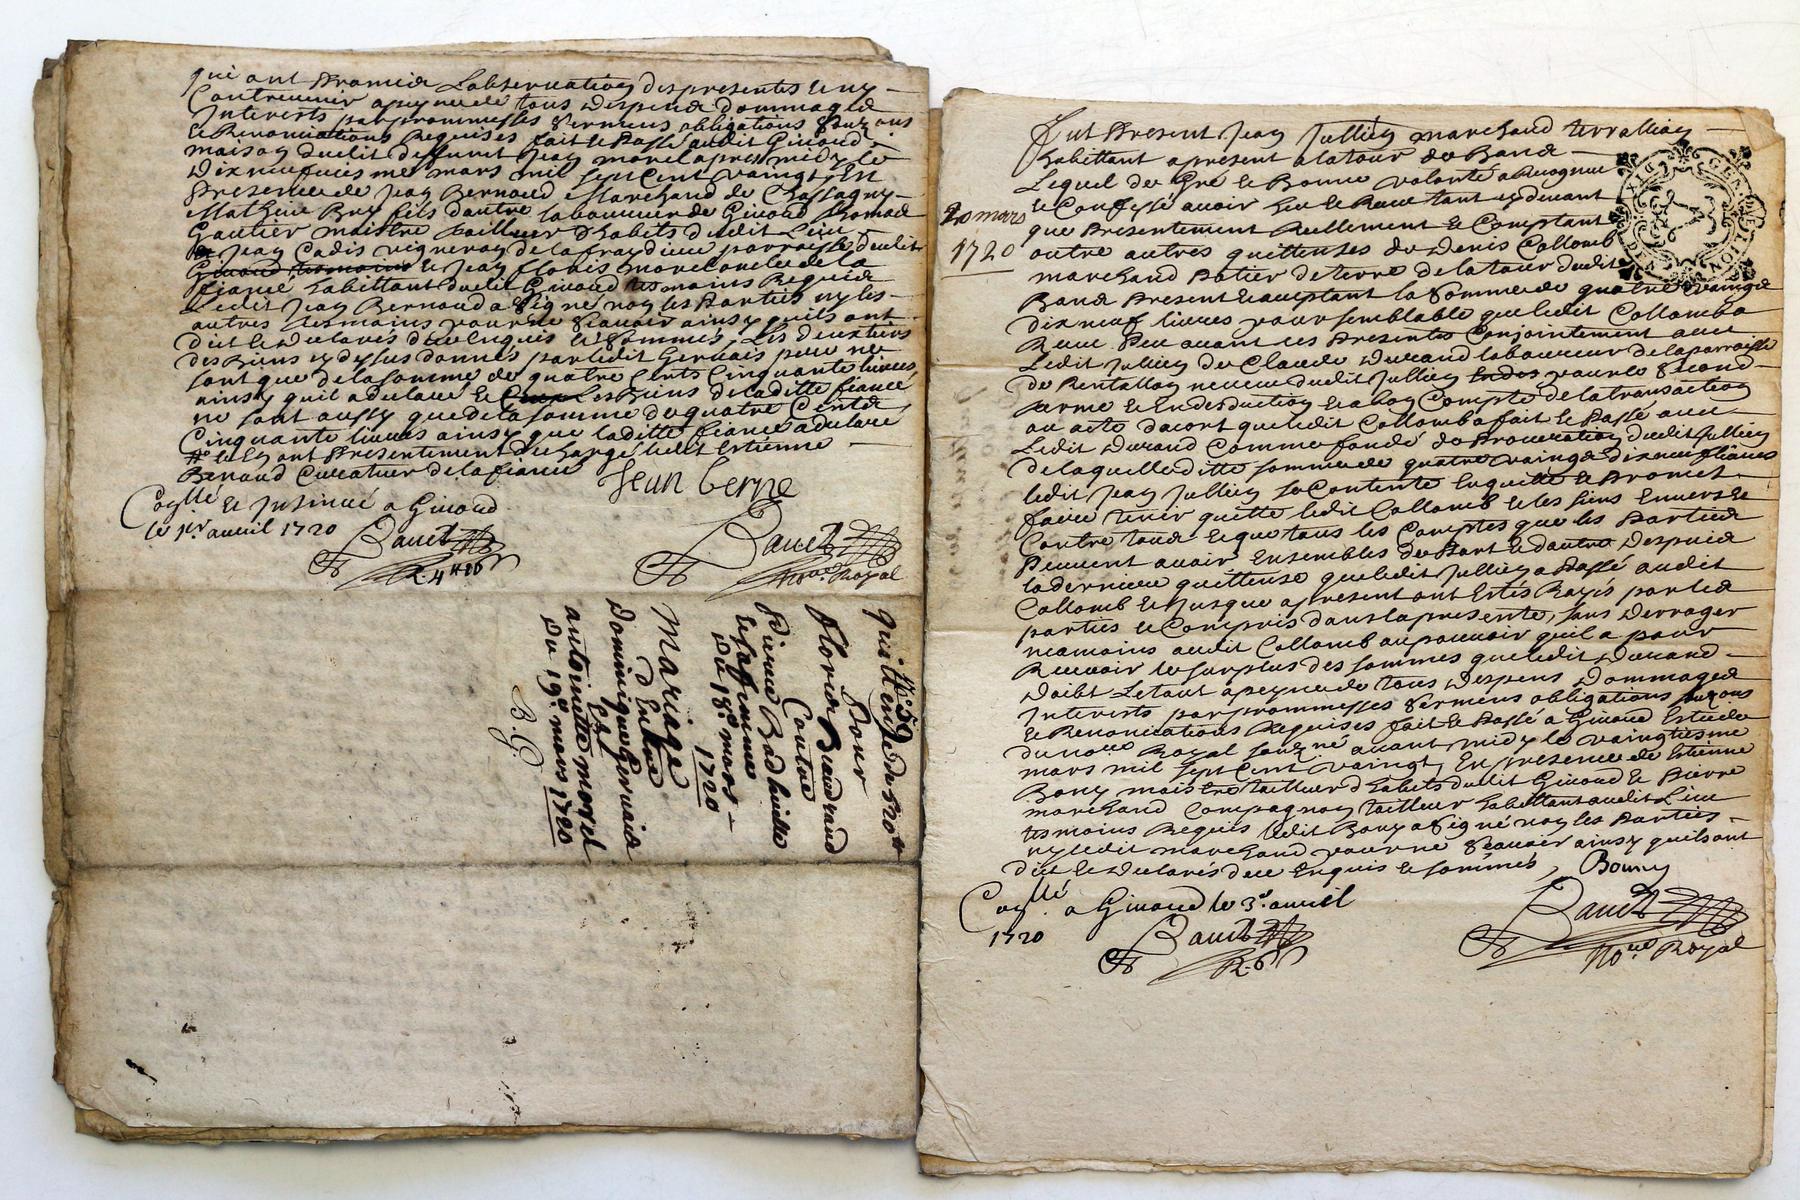 qui ont promis Lobservation des presentes le ny
Contrevenir a peyne de tous despens dommages
Interests par prommesses serments obligations souz ons
le Renonciations Requises fait le Passé audit Givord
maison dudit deffunct Jean morel apres midy le
dixneufiesme mars mil sept cent vaingt, En
presence de Jean Bernoud Marchand de Chassagny
Mathieu Bry fils dautre laboureur de Givord Thomas
Gautier maistre tailleur dhabits dudit Lieu
Jean Cadis vigneron de la fraydiere parroisse dudit
Givord le Jean floris morel oncle de la
fiancé habittant dudit Givord tesmoins Requis
Ledit Jean Bernoud a signé non les Parties ny les
autres tesmoins pour ne scavoir ainsy quils ont
dit le declarés de ce Enquis le sommés, Les deux tiers
des Biens cy dessus donnés par ledit Gervais pere ne
sont que de la somme de quatre cents Cinquante livres
ainsy quil a declaré le Les Biens de laditte fiancé
ne sont aussy que de la somme de quatre Cents
Cinquante livres ainsy que laditte fiancé a declaré
le Ey ont Presentement dechargé ledit Estienne
Benaud Curcateur de la fiancé Jean berne
Coñllé le Insinué a Givord
le 1er avril 1720
Bauet
R. 4# 16
Bauet
nore Royal
N° 59
quittence de 520#
Pour
floris Beaudrand
Contre
pierre Badhuilles
le sa femme
Du 18e mars
1720
Mariage
d'Entre
Dominique Gervais
Et
antoinette morel
Du 19e mars 1720
B. G
20 mars
1720
GEN DE LYON
Fut Present Jean Jullien marchand terrallion
habittant apresent a la tour de Band
Lequel de Gré le Bonne volonté a Recognu
le Confessé avoir heu le Receu tant cy devant
que Presentement Reellement le Comptant
outre autres quittenses de Denis Collomb
marchand Potier de terre de la tour dudit
Band Present le aceptant la somme de quatre vaingts
dix neuf livres pour semblable que ledit Collomb a
Receu Peu avant ces Presentes Conjointement avec
Ledit Jullien de Claude Durand laboureur de la parroisse
de Rentallon neveu dudit Jullien pour le second
terme le En deduction le a bon Compte de la transaction
ou acte dacort que ledit Collomb a fait le Passé avec
Ledit Durand Comme fondé de Procuration dudit Jullien
de laquelle ditte somme de quatre vaingts dix neuf livres
ledit Jean Jullien se Contente En quitte le Promet
faire tenir quitte ledit Collomb le les siens Envers le
Contre tous le que tous les Comptes que les Parties
Peuvent avoir Ensembles de Part le dautre Despuis
la derniere quittense que ledit Jullien a Passé audit
Collomb le Jusque apresent ont Estés Rayés par les
parties le Compris dans la presente, sans Derroger
neamoins audit Collomb au pouvoir quil a pour
Recevoir le surplus des sommes que ledit Durand
Doibt Le tout a peyne de tous Despens Dommages
Interests par prommesses sermens obligations souz ons
le Renonciations Requises fait le Passé a Givord Estude
du nore Royal souzné avant midy le vaingtiesme
mars mil sept cent vaingt, En presence de Estienne
Bony maistre tailleur dhabits dudit Givord le Pierre
marchand Compagnon tailleur habittant audit Lieu
tesmoins Requis ledit Bony a signé non les Parties
ny ledit marchand pour ne scavoir ainsy quils ont
dit le Declarés de ce Enquis le sommés, Bouny
Coñllé a Givord le 3e avril
1720
Bauet
R. 6s
Bauet
nore Royal